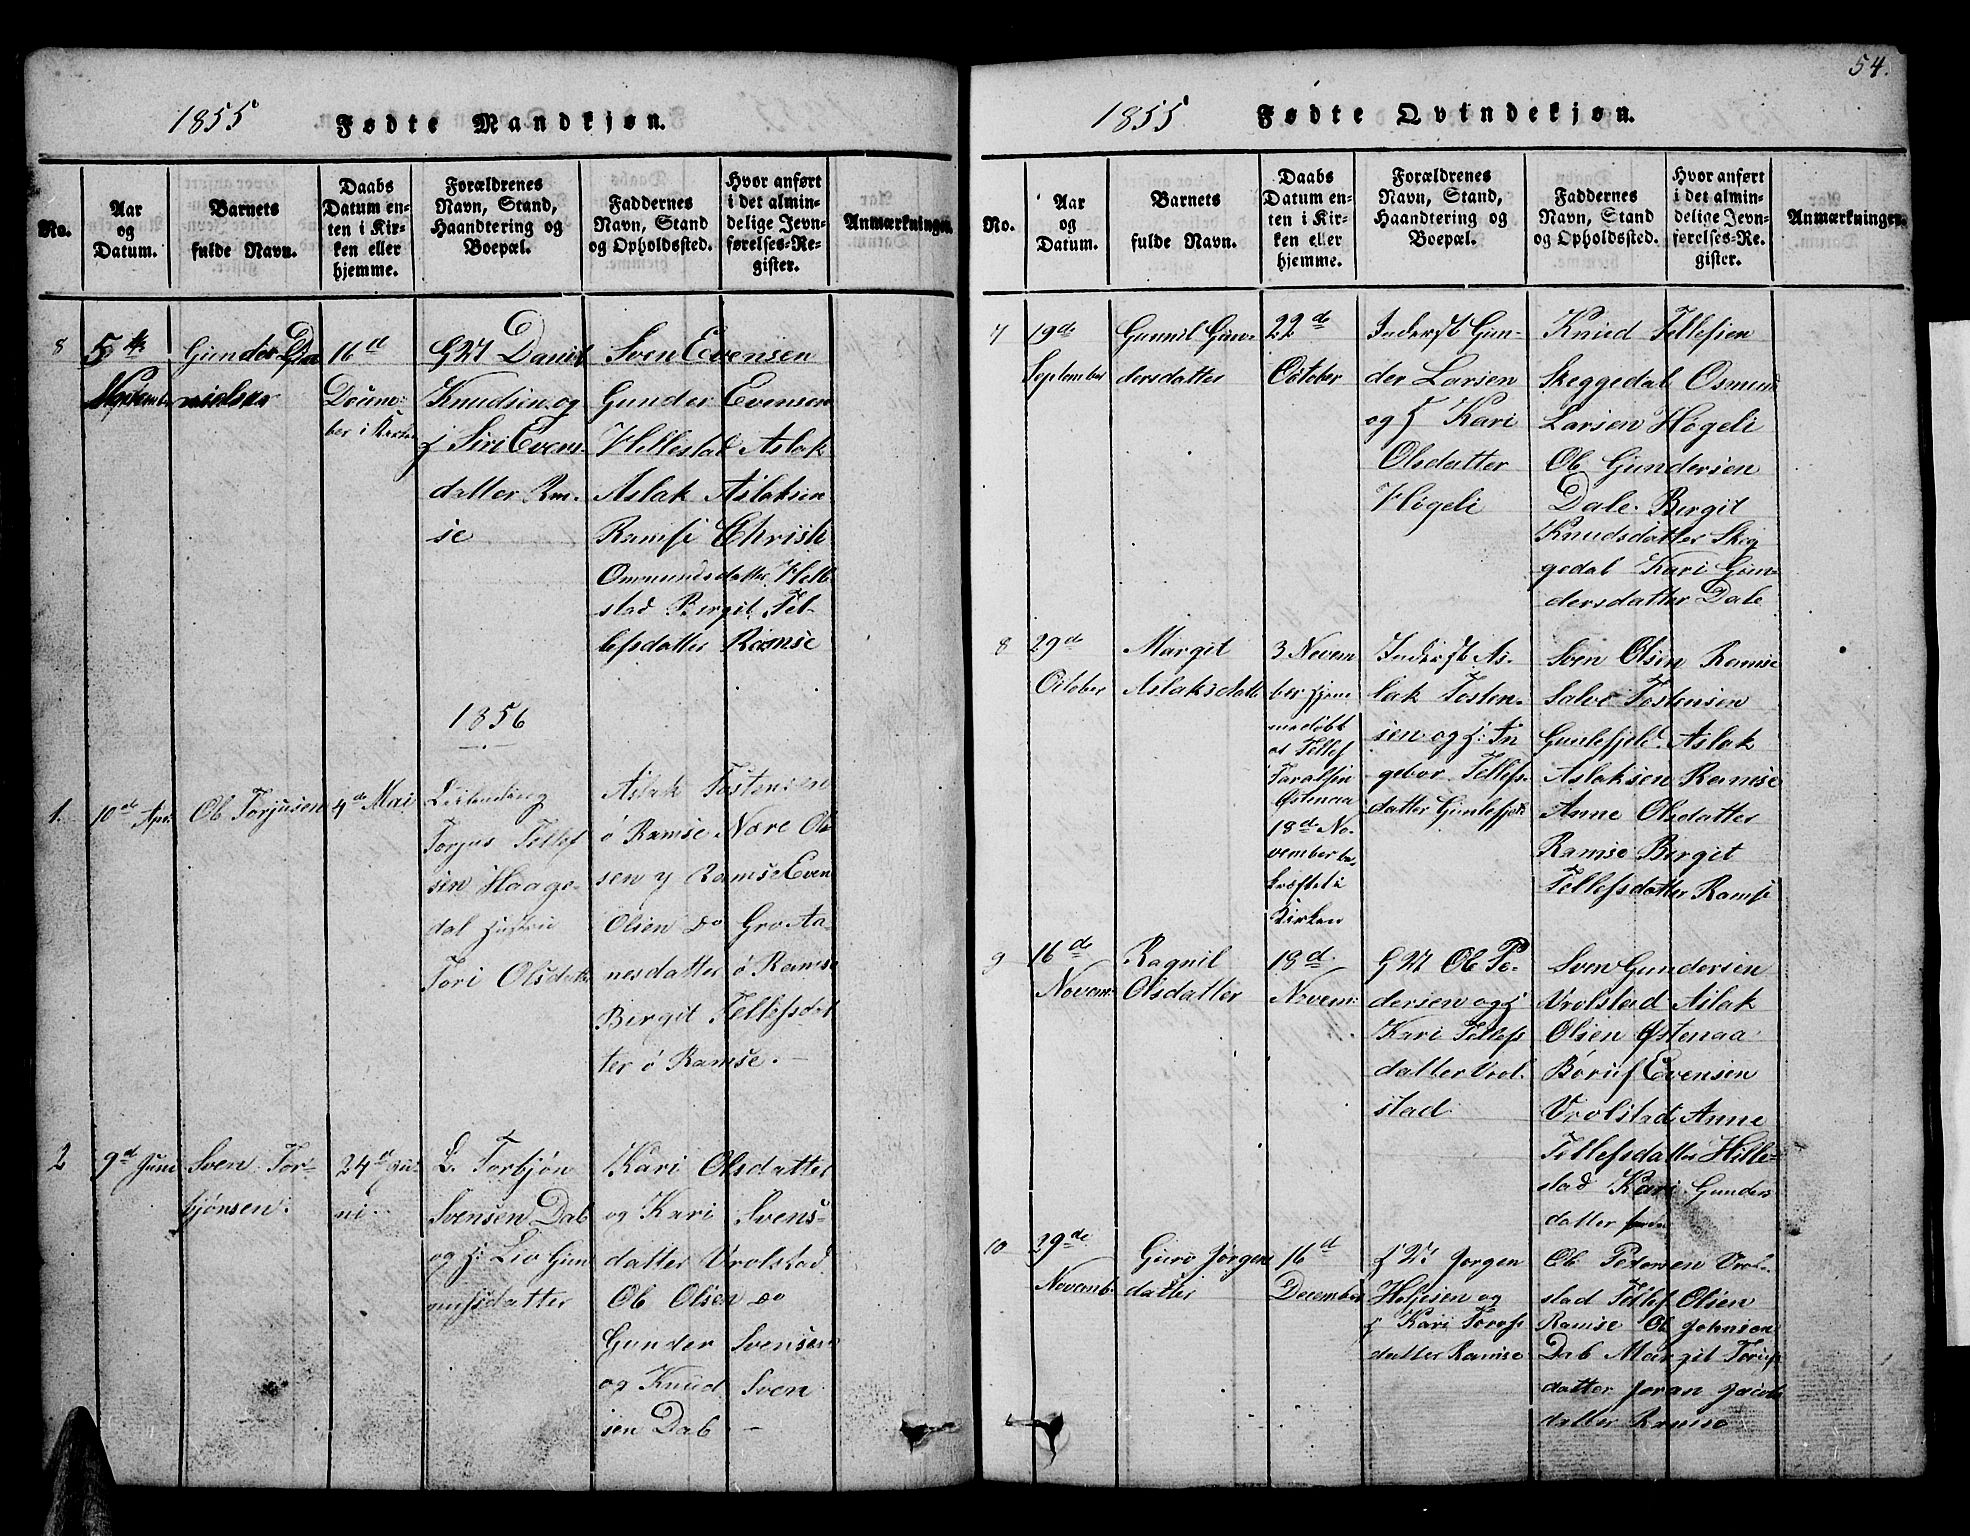 54.
1855
Fødte Mandkjøn.
No.
Aar
og
Datum.
Barnets
fulde Navn.
Daabs
Datum en-
ten i Kir-
ken eller
hjemme.
Forældrenes
Navn, Stand,
Haandtering og
Boepæl.
Faddernes
Navn, Stand
og Opholdssted.
Hvor anført
i det almin-
delige Jevn-
førelses-Re-
gister.
Anmærkninger.
8
5te
Gunder Da
nielsen
16d
Decem-
ber i Kirke
Daniel
Knudsen og
Siri Evens-
datter Ram-
se
Sven Evensen
Gunder Evensen
Hillestad Aslak
Aslak Aslaksen
Ramse Christi
Ommundsdatter Hille
stad Bergit Tel-
lefsdatter Ramse
1856
1.
10de Apr.
Ob Torjusen
4de Mai
Torjus Tellef
sen Haage-
dal
Tori Olsdatter
Aslak Tostensen
ø Ramse Nære Ol
sen y Ramse Even
Olsen do Gro Aa-
nesdatter ø Ramse
Birgit Tellefsdat
ter ø Ramse.
2
9d Juni
Sven Tor-
bjønsen.
24d Ju-
ni.
L. Torbjøn
Svensen Dab
og H: Liv Gun
nufsdatter
Kari Olsdatter
og Kari Svens-
datter Vrolstad
Ob Olsen do
Gunder Svensen
og Knud Sven
sen Dab.
1855
Fødte Qvindekjøn.
No.
Aar
og
Datum.
Barnets
fulde Navn.
Daabs
Datum en-
ten i Kir-
ken eller
hjemme.
Forældrenes
Navn, Stand,
Haandtering og
Boepæl.
Faddernes
Navn, Stand
og Opholdssted.
Hvor anført
i det almin-
delige Jevn-
førelses-Re-
gister.
Anmærkninger.
7
19de
September
Gunnil Gun-
dersdatter
22de
October
Inderst Gun-
der Larsen
og H Kari
Olsdatter
Høgeli
Knud Tellefsen
Skeggedal Osmund
Larsen Høgeli
Ob Gundersen
Dale. Bergit
Knudsdatter Skeg
gedal Kari Gun-
dersdatter Dale
8
29de
October
Margit
Aslaksdatter
3 Novem
ber hjem-
medøbt
af Tellef
Taralsen
Østenaa
18de No-
vember be-
kræftet i
Kirken
Inderst As-
lak Tosten-
sen og H: In
gebor Tellefs
datter
Sven Olsen Ramse
Salve Tostensen
Aslak
Aslaksen Ramse
Anne Olsdatter
Ramse Birgit
Tellefsdatter Ramse
9
16de
Novem:
Ragnil
Olsdatter
18d.
Novem:
Ob Pe-
dersen og H
Kari Tellefs
datter Vrol-
stad
Sven Gundersen
Vrolstad Aslak
Olsen Østenaa
Børuf Evensen
Vrolstad Anne
Tellefsdatter Hille-
stad Kari Gunders
datter
10
29de
Novemb.
Guro Jørgen
datter
16d
December
Jørgen
Heljesen og
H Kari
datter Ramse
Ob Pedersen Vrol-
stad Tellef Olsen
Ramse Ob Johnsen
Dab Margit
datter Joran Jacobs
datter Ramse